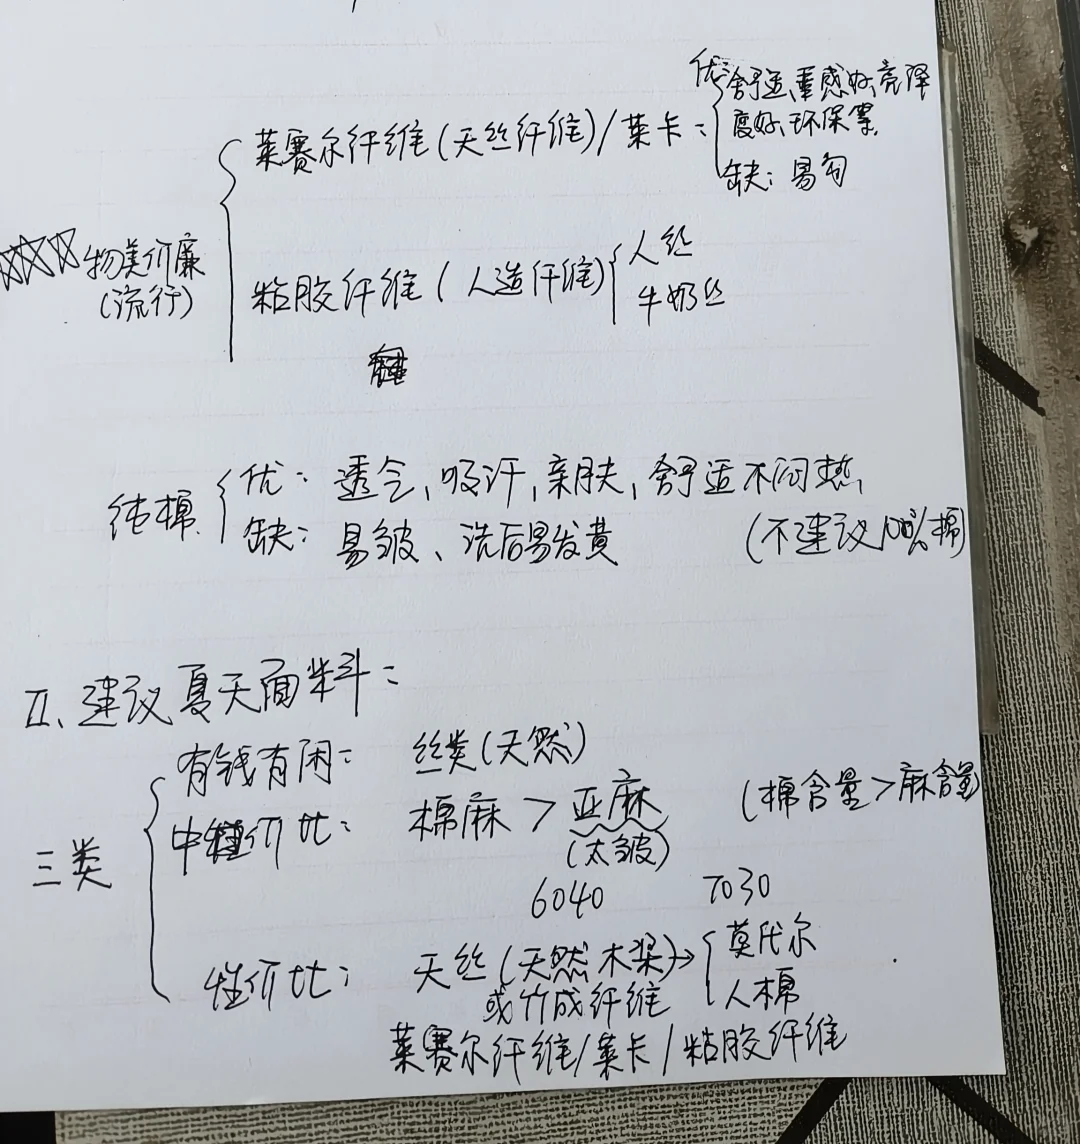 优：舒适、垂感好、亮泽
度好、环保等.
莱赛尔纤维(天丝纤维)/莱卡：
缺：易勾
☆☆☆物美价廉
(流行)
粘胶纤维(人造纤维)
人丝
牛奶丝
纯棉.
优：透气、吸汗,亲肤,舒适不闷热,
缺：易皱、洗后易发黄
(不建议100%棉)
五、建议夏天面料：
三类
有钱有闲：丝类(天然)
中价比：棉麻＞亚麻 (棉含量＞麻含量)
(太皱)
6040 7030
性价比：天丝(天然木梁)→
或竹成纤维
莫代尔
人棉
莱赛尔纤维/莱卡/粘胶纤维